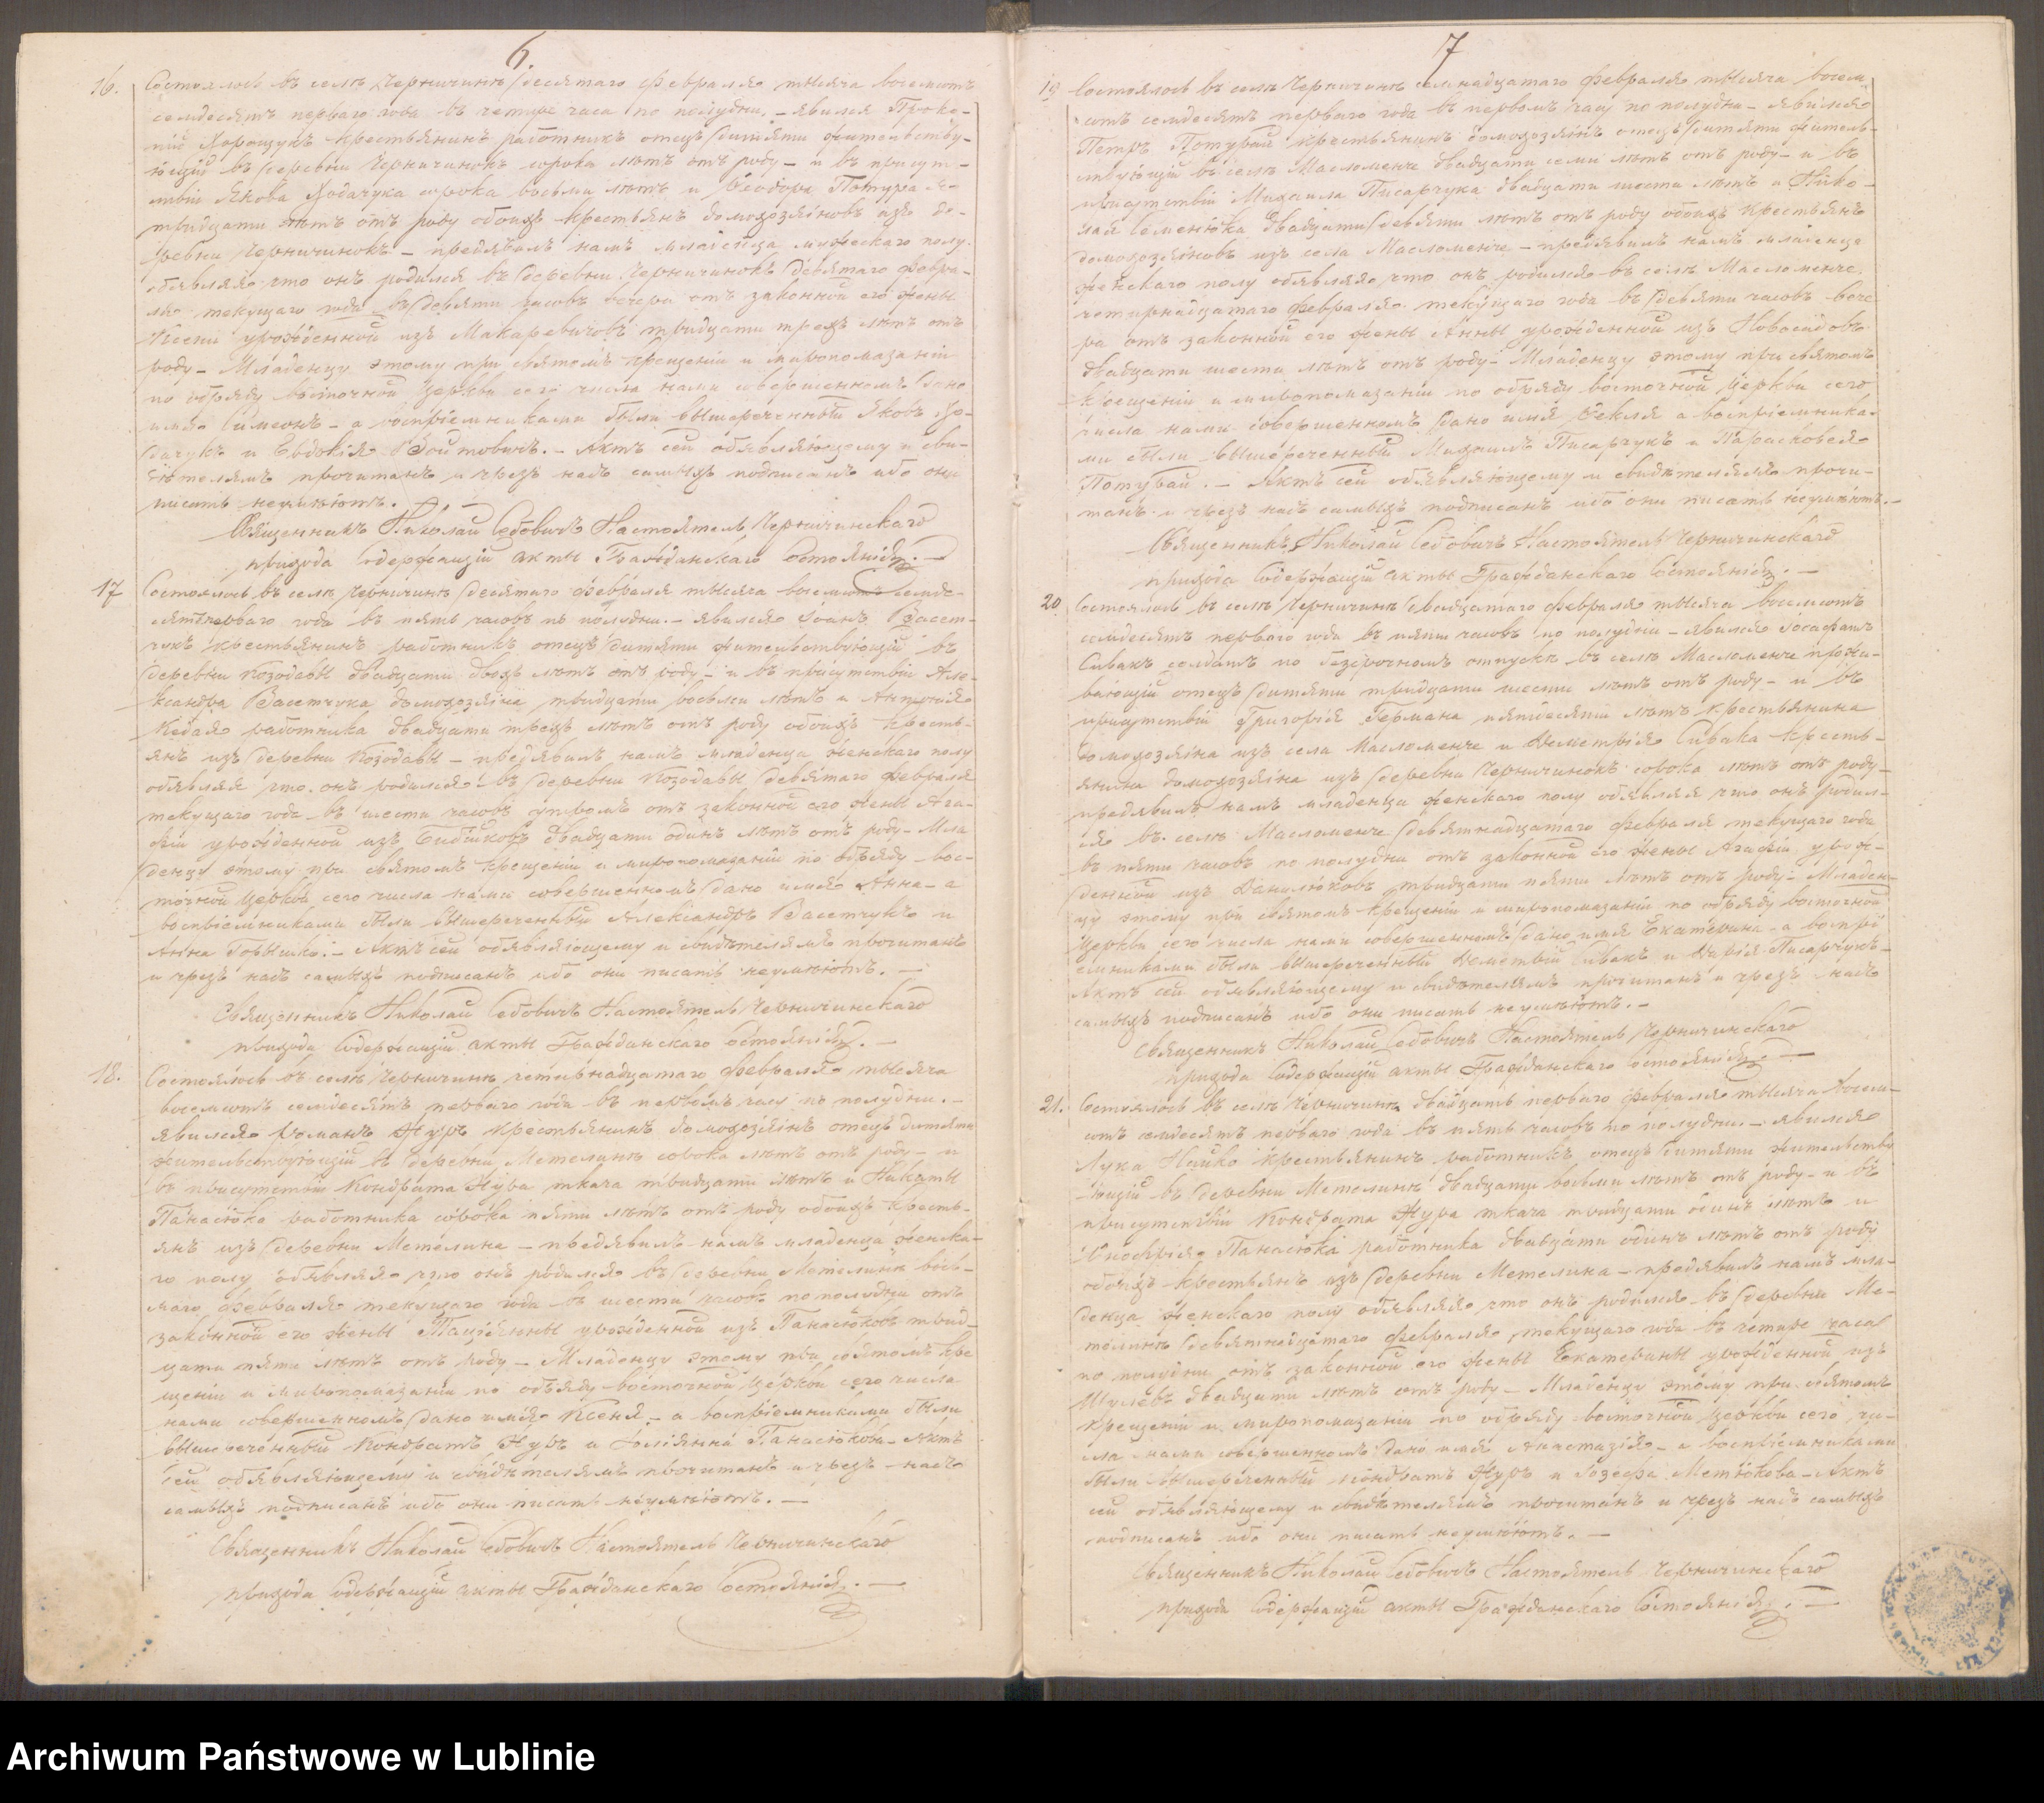 6.
16. Состоялось въ селѣ Черничинѣ десятаго февраля тысяча восемсотъ
семдесятъ перваго года въ четыре часа по полудни. – явился Проко-
пій Хорощукъ крестьянинъ работникъ отецъ дитяти жительству-
ющій въ деревни Черничинокъ сорока лѣтъ отъ роду – и въ присут-
ствіи Якова Ходачука сорока восьми лѣтъ и Ѳеодора Потура
тридцати лѣтъ отъ роду обоихъ крестьянъ домохозяіновъ изъ де-
ревни Черничинокъ. – предявилъ намъ младенца мужескаго полу
обявляя что онъ родился въ деревни Черничинокъ девятаго февра-
ля текущаго года въ девяти часовъ вечера отъ законной его жены
Ксеніи урожденной изъ Макаревичовъ тридцати трехъ лѣтъ отъ
роду – Младенцу этому при святомъ крещеніи и миропомазаніи
по обряду восточной Церкви сего числа нами совершенномъ дано
имя Симеонъ – а воспріемниками были вышереченный Яковъ Хо-
дачукъ и Евдокія Войтовичъ. – Актъ сей обявляющему и сви-
дѣтелямъ прочитанъ и чрезъ насъ самыхъ подписанъ ибо они
писать неумѣютъ. –
Священникъ Николай Седовичъ Настоятель Черничинскаго
прихода Содержащій акты Гражданскаго Состоянія. –
17 Состоялось въ селѣ Черничинѣ десятаго февраля тысяча восемсотъ семде-
сятъ перваго года въ пять часовъ по полудни. – явился Іоанъ Васет-
чукъ крестьянинъ работникъ отецъ дитяти жительствующій въ
деревни Козодавы двадцати двохъ лѣтъ отъ роду – и въ присутствіи Але-
ксандра Васетчука домохозяіна тридцати восьми лѣтъ и Антонія
Кедая работника двадцати трехъ лѣтъ отъ роду обоихъ кресть-
янъ изъ деревни Козодавы – предявилъ намъ младенца женскаго полу
обявляя что онъ родился въ деревни Козодавы девятаго февраля
текущаго года въ шести часовъ утромъ отъ законной его жены Ага-
фіи урожденной изъ двадцати одинъ лѣтъ отъ роду – Мла
денцу этому при святомъ крещеніи и миропомазаніи по обряду вос-
точной Церкви сего числа нами совершенномъ дано имя Анна – а
воспріемниками были вышереченный Александръ Васетчукъ и
Анна – Актъ сей обявляющему и свидѣтелямъ прочитанъ
и чрезъ насъ самыхъ подписанъ ибо они писать неумѣютъ. –
Священникъ Николай Седовичъ Настоятель Черничинскаго
прихода Содержащій акты Гражданскаго Состоянія. –
18. Состоялось въ селѣ Черничинѣ четырнадцатаго февраля тысяча
восемсотъ семдесятъ перваго года въ первомъ часу по полудни. –
явился Романъ Журъ крестьянинъ домохозяінъ отецъ дитяти
жительствующій въ деревни Метелинѣ сорока лѣтъ отъ роду – и
въ присутствіи Кондрата Жура ткача тридцати лѣтъ и Никиты
Панасюка работника сорока пяти лѣтъ отъ роду обоихъ кресть-
янъ изъ деревни Метелина – предявилъ намъ младенца женска-
го полу обявляя что онъ родился въ деревни Метелинѣ вось-
маго февраля текущаго года въ шести часовъ по полудни отъ
законной его жены Тацианны урожденной изъ Панасюковъ трид-
цати пяти лѣтъ отъ роду – Младенцу этому при святомъ кре
щеніи и миропомазаніи по обряду восточной Церкви сего числа
нами совершенномъ дано имя Ксеня – а воспріемниками были
вышереченный Кондратъ Журъ и Юлянна Панасюкова – Актъ
сей обявляющему и свидѣтелямъ прочитанъ и чрезъ насъ
самыхъ подписанъ ибо они писать неумѣютъ. –
Священникъ Николай Седовичъ Настоятель Черничинскаго
прихода Содержащій акты Гражданскаго Состоянія. –
7
19 Состоялось въ селѣ Черничинѣ семнадцатаго февраля тысяча восем
сотъ семдесятъ перваго года въ первомъ часу по полудни – явился
Петръ Потурай крестьянинъ домохозяінъ отецъ дитяти житель-
ствующій въ селѣ Масломенче двадцати семи лѣтъ отъ роду – и въ
присутствіи Михаила Писарчука двадцати шести лѣтъ и Нико-
лая Семенюка двадцати девяти лѣтъ отъ роду обоихъ крестьянъ
домохозяіновъ изъ села Масломенче – предявилъ намъ младенца
женскаго полу обявляя что онъ родился въ селѣ Масломенче
четырнадцатаго февраля текущаго года въ девяти часовъ вече
ра отъ законной его жены Анны урожденной изъ Новосадовъ
двадцати шести лѣтъ отъ роду – Младенцу этому при святомъ
крещеніи и миропомазаніи по обряду восточной Церкви сего
числа нами совершенномъ дано имя Ѳекля а воспріемника-
ми были вышереченный Михаилъ Писарчукъ и Парасковея
Потурай. – Актъ сей обявляющему и свидѣтелямъ прочи-
танъ и чрезъ насъ самыхъ подписанъ ибо они писать неумѣютъ. –
Священникъ Николай Седовичъ Настоятель Черничинскаго
прихода Содержащій акты Гражданскаго Состоянія. –
20 Состоялось въ селѣ Черничинѣ двадцатаго февраля тысяча восемсотъ
семдесятъ перваго года въ пяти часовъ по полудни – явился Іосафатъ
Сивакъ солдатъ по безсрочномъ отпускѣ въ селѣ Масломенче прожи-
вающій отецъ дитяти тридцати шести лѣтъ отъ роду – и въ
присутствіи Григорія Германа пятидесяти лѣтъ крестьянина
домохозяіна изъ села Масломенче и Деметрія Сивака кресть-
янина домохозяіна изъ деревни Черничинокъ сорока лѣтъ отъ роду –
предявилъ намъ младенца женскаго полу обявляя что онъ родил-
ся въ селѣ Масломенче девятнадцатаго февраля текущаго года
въ пяти часовъ по полудни отъ законной его жены Агафіи урож-
денной изъ Данилюковъ тридцати пяти лѣтъ отъ роду – Младен-
цу этому при святомъ крещеніи и миропомазаніи по обряду восточной
Церкви сего числа нами совершенномъ дано имя Екатерина – а воспрі
емниками были вышереченный Деметрій Сивакъ и Марія Писарчукъ –
Актъ сей обявляющему и свидѣтелямъ прочитанъ и чрезъ насъ
самыхъ подписанъ ибо они писать неумѣютъ. –
Священникъ Николай Седовичъ Настоятель Черничинскаго
прихода Содержащій акты Гражданскаго Состоянія. –
21. Состоялось въ селѣ Черничинѣ двадцать перваго февраля тысяча восем-
сотъ семдесятъ перваго года въ пять часовъ по полудни. – явился
Лука крестьянинъ работникъ отецъ дитяти жительству
ющій въ деревни Метелинѣ двадцати восьми лѣтъ отъ роду – и въ
присутствіи Кондрата Жура ткача тридцати одинъ лѣтъ и
Онофрія Панасюка работника двадцати одинъ лѣтъ отъ роду
обоихъ крестьянъ изъ деревни Метелина – предявилъ намъ мла-
денца женскаго полу обявляя что онъ родился въ деревни Ме-
телинѣ девятнадцатаго февраля текущаго года въ четыре часа
по полудни отъ законной его жены Екатерины урожденной изъ
двадцати лѣтъ отъ роду – Младенцу этому при святомъ
крещеніи и миропомазаніи по обряду восточной Церкви сего чи-
сла нами совершенномъ дано имя Анастазія – а воспріемниками
были вышереченный Кондратъ Журъ и Іозефа – Актъ
сей обявляющему и свидѣтелямъ прочитанъ и чрезъ насъ самыхъ
подписанъ ибо они писать неумѣютъ. –
Священникъ Николай Седовичъ Настоятель Черничинскаго
прихода Содержащій акты Гражданскаго Состоянія. –
Archiwum Państwowe w Lublinie